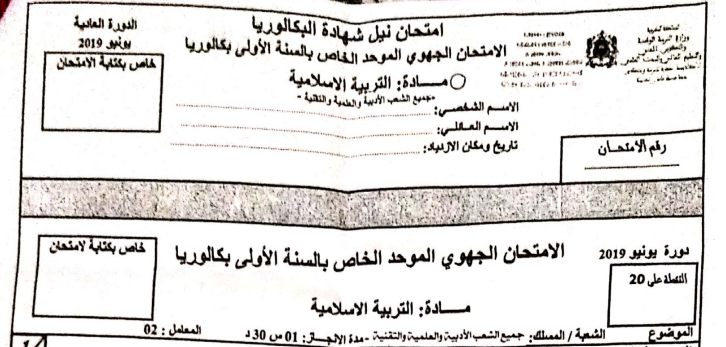 امتحان نيل شهادة البكالوريا
الامتحان الجهوي الموحد الخاص بالسنة الأولى بكالوريا
الدورة العادية
يونيو 2019
خاص بكتابة الامتحان
مـــادة: التربية الاسلامية
-جميع الشعب الأدبية والعلمية والتقنية -
الاسم الشخصي:
الاسم العائلي:
تاريخ ومكان الازدياد:
رقم الامتحان
دورة يونيو 2019
الامتحان الجهوي الموحد الخاص بالسنة الأولى بكالوريا
خاص بكتابة لامتحان
النقطة على 20
مـــادة: التربية الاسلامية
الموضوع
الشعبة / المسلك: جميع الشعب الأدبية والعلمية والتقنية - مدة الانجاز: 01 س 30 د
المعامل : 02